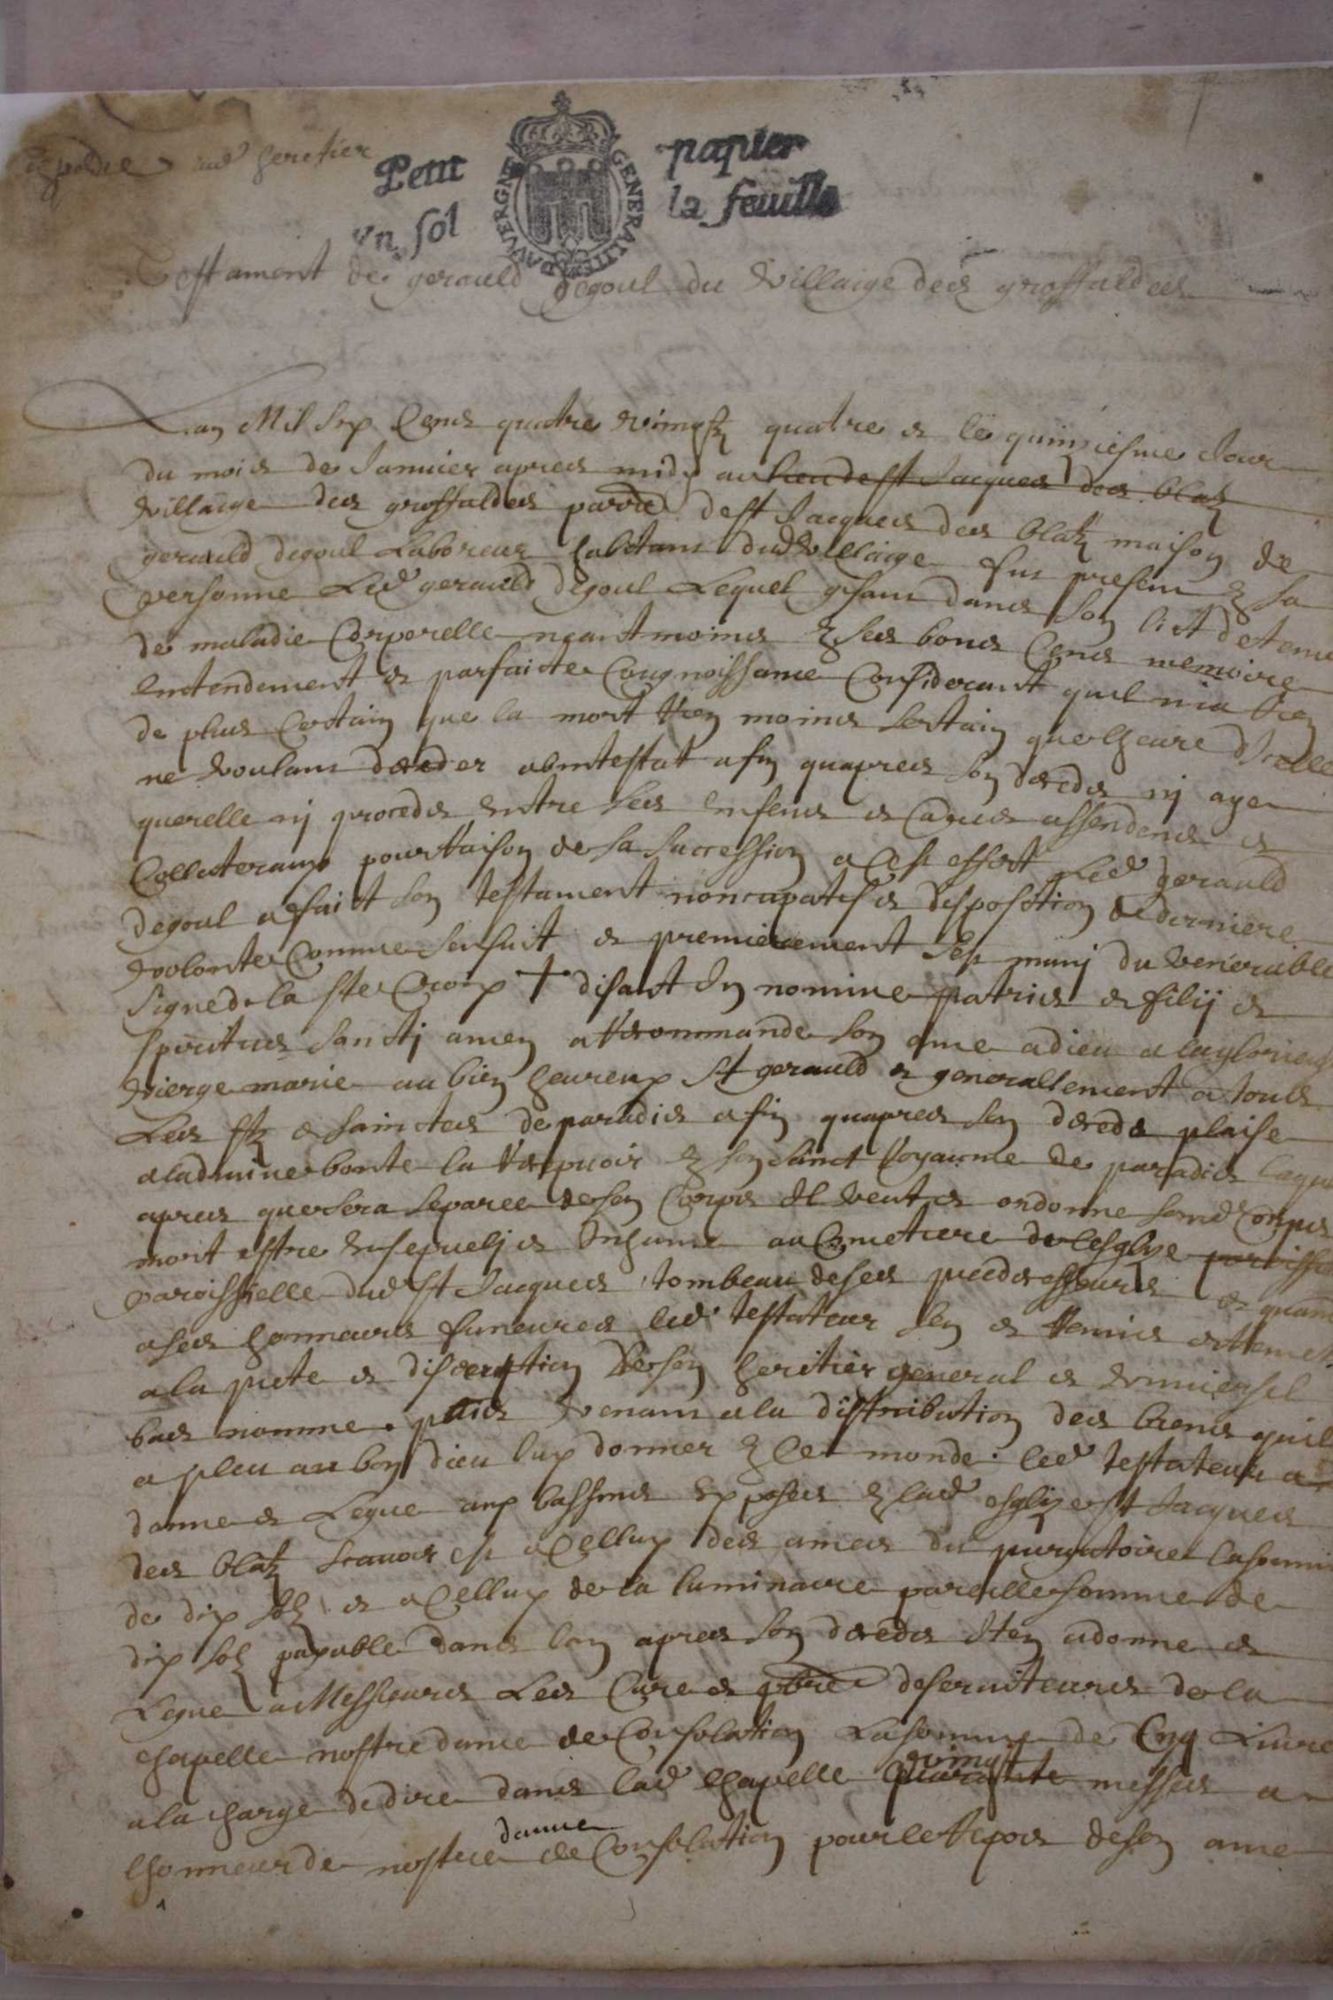 aud heretier
Petit papier
vn sol la feuille
GENERALITE D'AUVERGNE
Testament de gerauld degoul du villaige des groffaldies
Lan Mil six Cens quatre vingtz quatre et le quinziesme Jour
du mois de Januier apres midy au lieu de st Jacques des blatz
villaige des groffaldies parroisse de st Jacques des blatz maison de
gerauld degoul Laboreur habitant dud villaige fut present en sa
personne Led gerauld degoul Lequel gisant dans son lict detenu
de maladie Corporelle neantmoins en ses bons Cens memoire
entendement et parfaicte Cougnoissance Considerant quil nia rien
de plus Certain que la mort rien moins sertain que lheure dicelle
ne voulant deceder abintestat afin quapres son deces nj aye
querelle nj proces entre ses enfens et assendens et
Collateraux pour raison de sa succession a Cest effect Led gerauld
degoul a faict son testament noncupatif et disposition de derniere
volonte Comme sensuit et premierement sest munj du venerable
signe de la ste Croix + disant In nomine patris et filij et
spiritus sanctj amen a recommande son ame a dieu a la glorieuse
vierge marie au bien heureux st gerauld et generallement a tous
Les stz et sainctes de paradis afin quapres son deces plaise
a la diuine bonte la recepuoir en son sainct royaume de paradis laquelle
apres que sera separee de son Corps Il veut et ordonne sond Corps
mort estre ensepuelj et Inhume au Cimetiere de lesglise paroissi
paroissielle dud st Jacques tombeau de ses predecesseurs et quant
a ses honneurs funeures led testateur sen et remis et remet
a la piete et discretion de son heritier general et vniersel
bas nomme. puis venant a la distribution des biens quil
a pleu au bon dieu luy donner en ce monde. led testateur a
donne et Legue aux bassins exposes en lad esglize st Jacques
des blatz scauoir est a Celluy des ames du purgatoire la somme
de dix solz et a Celluy de la luminaire pareille somme de
dix solz payable dans lan apres son deces Item a donne et
Legue a Messieurs Les Cure et pbres deseruiteurs de la
chapelle nostre dame de Consolation La somme de Cinq Liures
a la charge de dire dans lad chapelle quarante vingt messes a
lhonneur de nostre dame de Consolation pour le repos de son ame